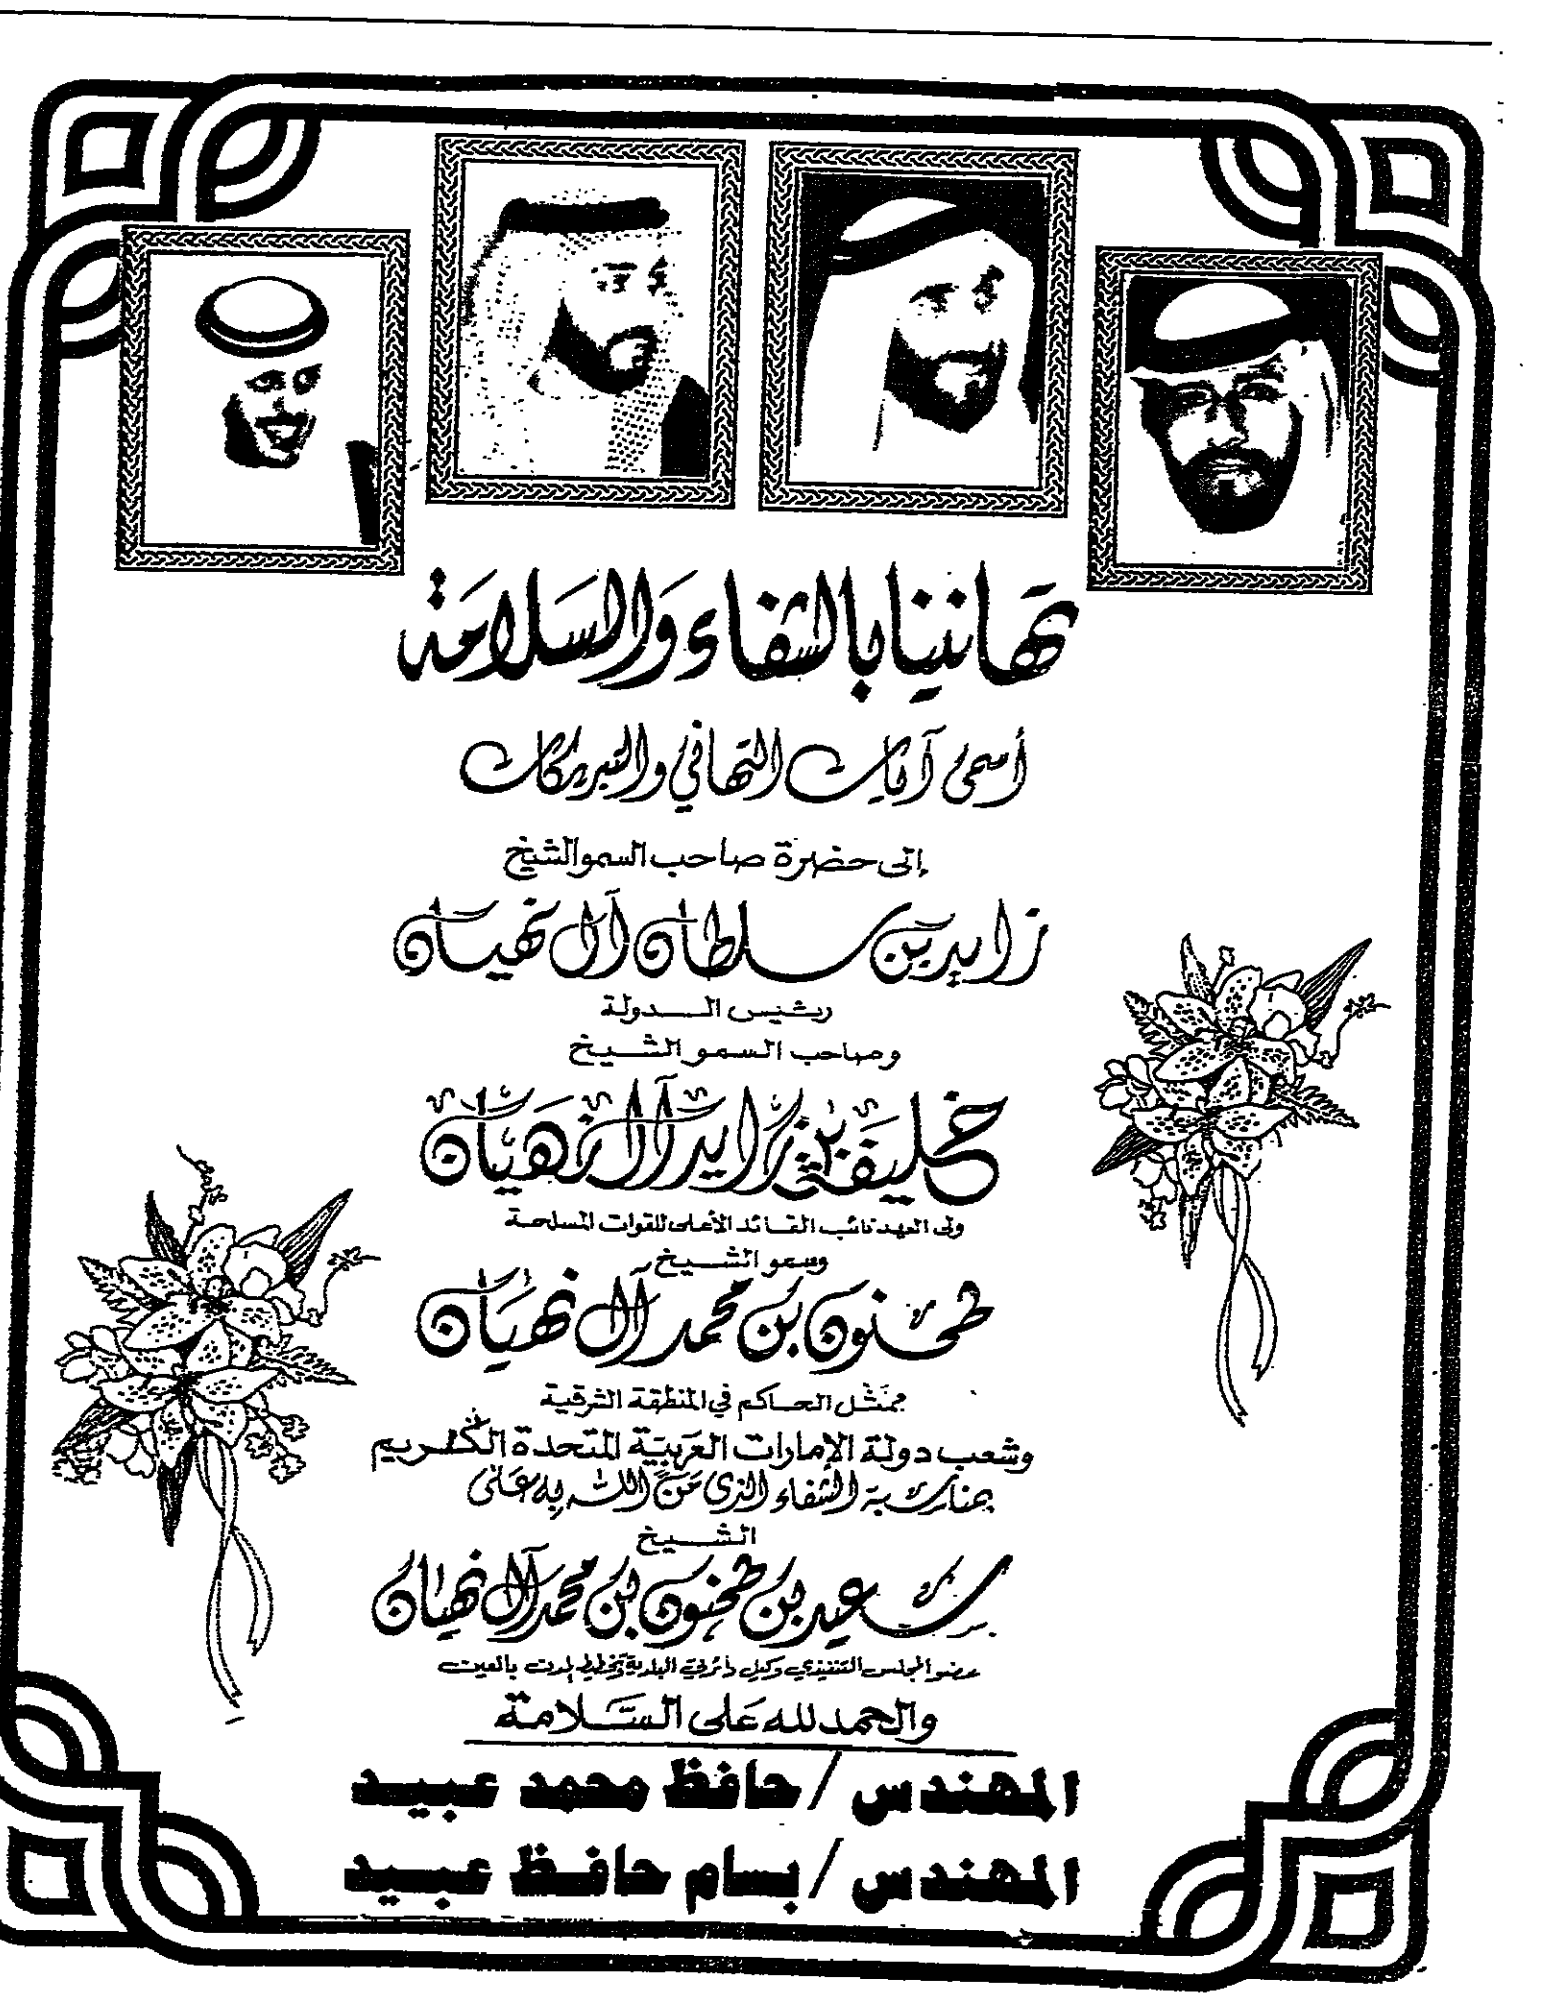 تهانينا بالشفاء والسلامة
أسمى آيات التهاني والتبريكات
إلى حضرة صاحب السمو الشيخ
زايد بن سلطان آل نهيان
رئيس الدولة
وصاحب السمو الشيخ
خليفة بن زايد آل نهيان
ولي العهد نائب القائد الأعلى للقوات المسلحة
وسمو الشيخ
طحنون بن محمد آل نهيان
ممثل الحاكم في المنطقة الشرقية
وشعب دولة الإمارات العربية المتحدة الكريم
بمناسبة الشفاء الذي من الله به على
الشيخ
سعيد بن طحنون بن محمد آل نهيان
عضو المجلس التنفيذي وكيل دائرتي البلدية وتخطيط المدن بالعين
والحمد لله على السلامة
المهندس / حافظ محمد عبيد
المهندس / بسام حافظ عبيد